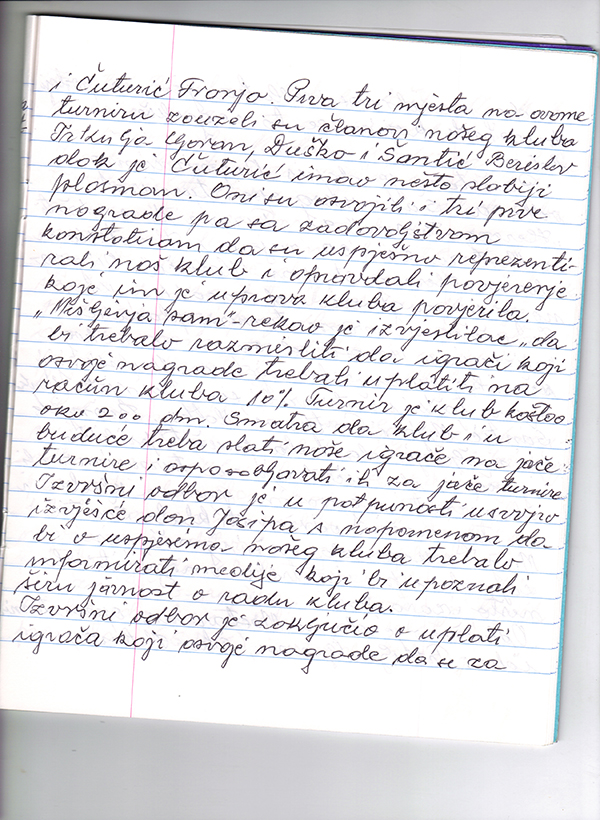 i Čuturić Franjo. Prva tri mjesta na ovome
turniru zauzeli su članovi našeg kluba
Trkulja Goran, Duško i Šantić Berislav
dok je Čuturić imao nešto slabiji
plasman. Oni su osvojili i tri prve
nagrade pa sa zadovoljstvom
konstatiram da su uspješno reprezenti-
rali naš klub i opravdali povjerenje
koje im je uprava kluba povjerila.
„Mišljenja sam"-rekao je izvjestilac „da
bi trebalo razmisliti da igrači koji
osvoje nagrade trebali uplatiti na
račun kluba 10%. Turnir je klub koštao
oko 200 dm. Smatra da klub i u
buduće treba slati naše igrače na jače
turnire i osposobljavati ih za jače turnire
Izvršni odbor je u potpunosti usvojio
izvješće don Josipa s napomenom da
bi o uspjesima našeg kluba trebalo
informirati medije koji bi upoznali
širu javnost o radu kluba.
Izvršni odbor je zaključio o uplati
igrača koji osvoje nagrade da se za